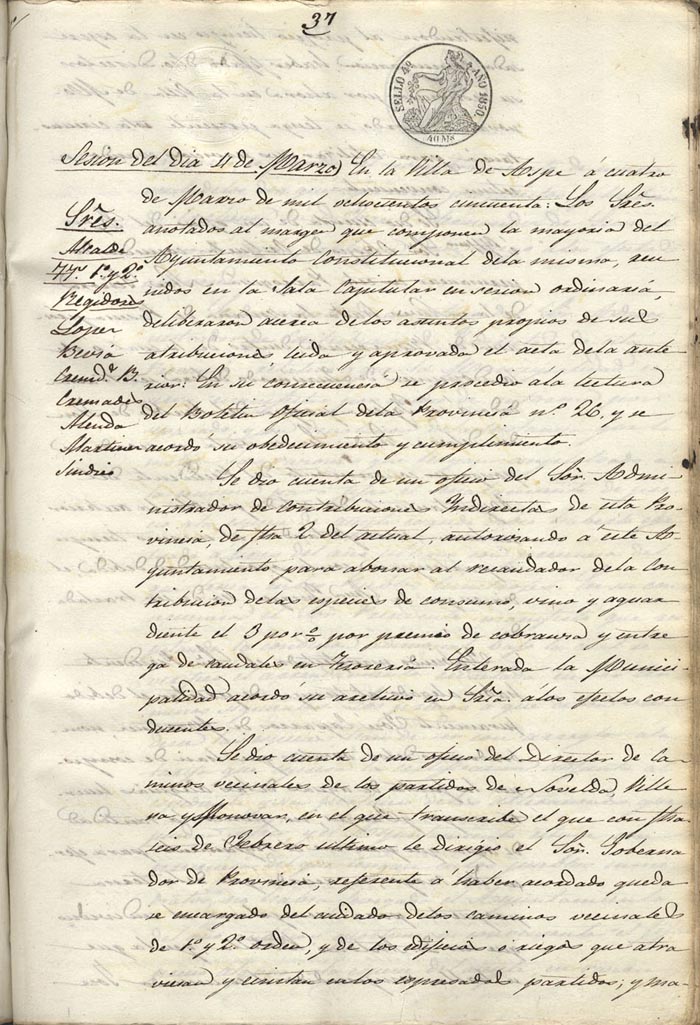 37
SELLO 4º AÑO 1850
40 Ms
Sesion del dia 4 de Marzo) En la Villa de Aspe á cuatro
de Marzo de mil ochocientos cincuenta: Los Sres.
anotados al margen que componen la mayoria del
Ayuntamiento Constitucional dela misma, reu-
nidos en la Sala Capitular en sesion ordinaria,
deliberaron acerca de los asuntos propios de sus
atribuciones, leida y aprovada el acta dela ante
rior: En su consecuencia se procedio ala lectura
del Boletin Oficial dela Provincia nº 26, y se
acordó su obedecimiento y cumplimiento.
Sres.
Alcalde
TT. 1º y 2º
Regidores
Lopez
Bevia
Cremd.s B.
Cremades
Alenda
Martinez
Sindico
Se dio cuenta de un oficio del Sor. Admi-
nistrador de Contribuciones Indirectas de esta Pro-
vincia, de fha 2 del actual, autorisando á este A-
yuntamiento para abonar al recaudador dela Con
tribucion delas especies de consumo, vino y aguar
diente el 3 por % por premio de cobransa y entre
ga de caudales en Tesoreria. Enterada la Munici
palidad acordó su archivo en Sria. alos efectos con
ducentes.
Se dio cuenta de un oficio del Director de Ca
minos vecinales de los partidos de Novelda, Ville
na y Monovar, en el que transcribe el que con fha
seis de Febrero ultimo le dirigio el Sor. Goberna
dor de Provincia, referente á haber acordado queda
se encargado del cuidado delos caminos vecinales
de 1º y 2º orden, y de los edificios o riegos que atra
viesan y existan enlos espresados partidos; y ma-